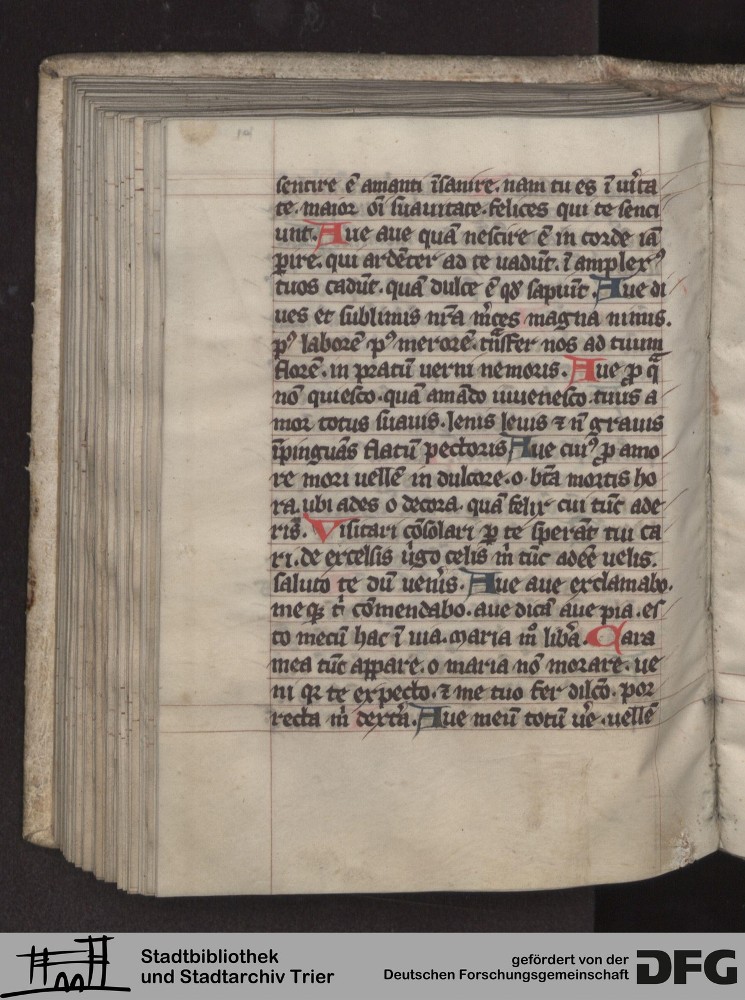 sentire ē amanti īsanire. nam tu es ī uīta
te. maior oī suauitate. felices qui te senci
unt. Aue aue quā nescire ē in corde iā
ꝑire. qui ardēter ad te uadūt. ī amplexꝰ
tuos cadūt. quā dulce ē qđ sapiūt. Aue di
ues et sublimis nr̄a m̄ces magna nimis.
pꝰ laborē pꝰ merorē. tn̄sfer nos ad tuum
florē. in pratū uerni nemoris. Aue ꝓ q̄
nō quiesco. quā amādo iuuenesco. tuus a
mor totus suauis. lenis leuis ⁊ n̄ grauis
īpinguās flatū pectoris Aue cuiꝰ ꝓ amo
re mori uellē in dulcore. o. bt̄a mortis ho
ra. ubi ades o decora. quā felix cui tūc ade
ris̄. Visitari cōsolari ꝑ te sperāt tui ca
ri. de excelsis ūgo celis m̄ tūc adeē uelis.
saluto te dū uen̄is. Aue aue exclamabo.
meqꝫ t̄ cōmendabo. aue dicā aue pia. es
to mecū hac ī uia. maria m̄ lib̄a. Cara
mea tūc appare. o maria nō morare. ue
ni qꝛ te expecto. ⁊ me tuo fer dilc̄o. por
recta m̄ dext̄a. Aue meū totū ūe. uellē
Stadtbibliothek
und Stadtarchiv Trier
gefördert von der
Deutschen Forschungsgemeinschaft
DFG